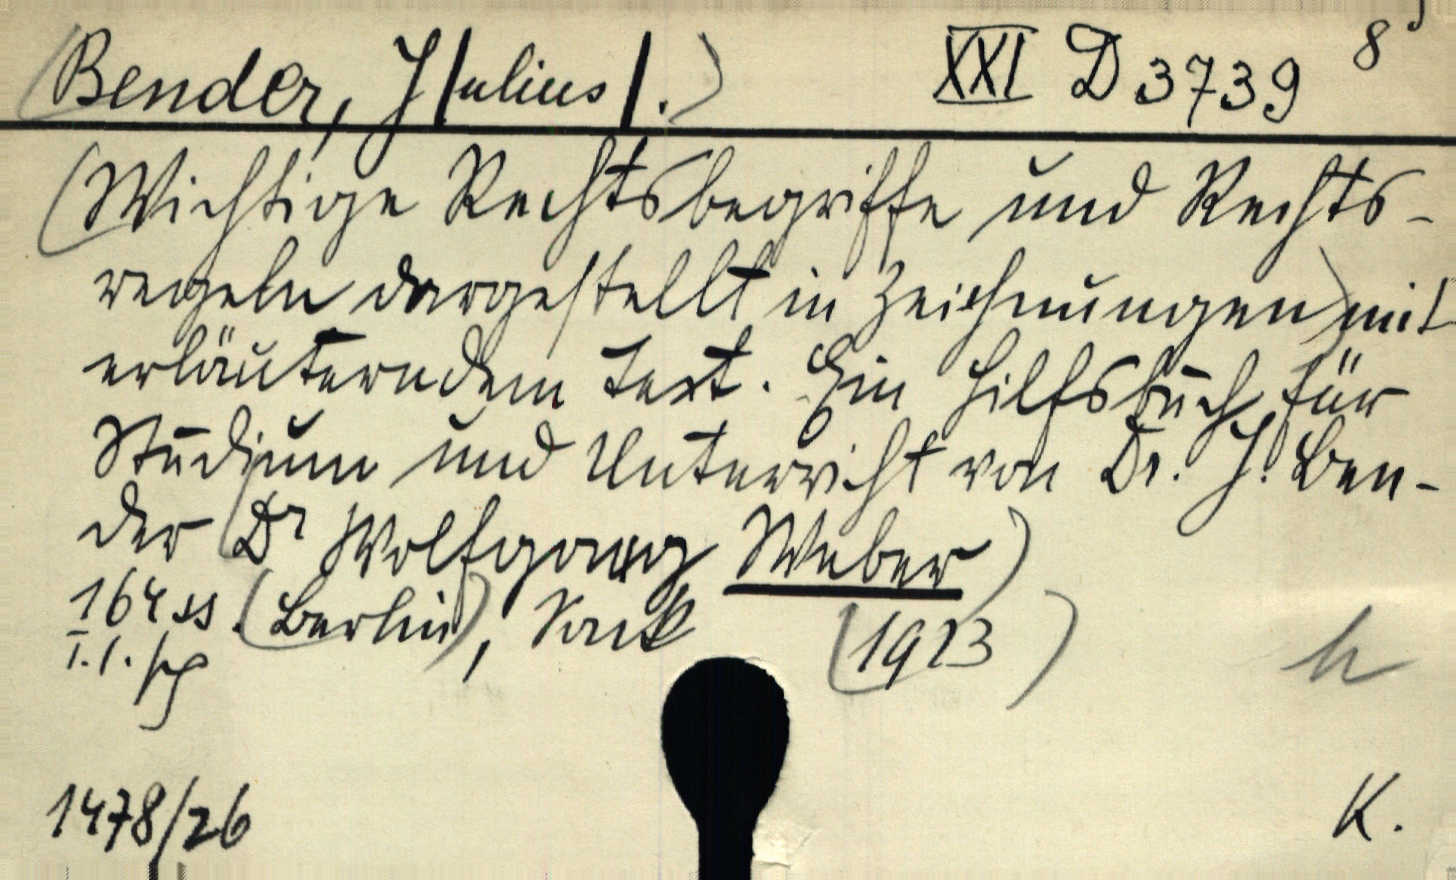 (Bender, J|ulius|.) XXI D 3739 8°
(Wichtige Rechtsbegriffe und Rechts-
regeln dargestellt in Zeichnungen) mit
erläuterndem Text. Ein Hilfsbuch für
Studium und Unterricht von Dr. J. Ben-
der (Dr Wolfgang Weber)
164 ss. (Berlin), Sack (1923)
h
1478/26 K.